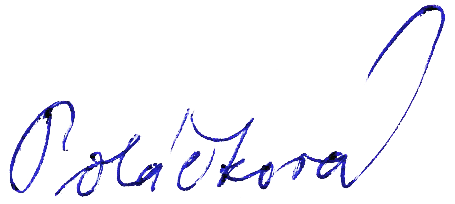 Poláčková